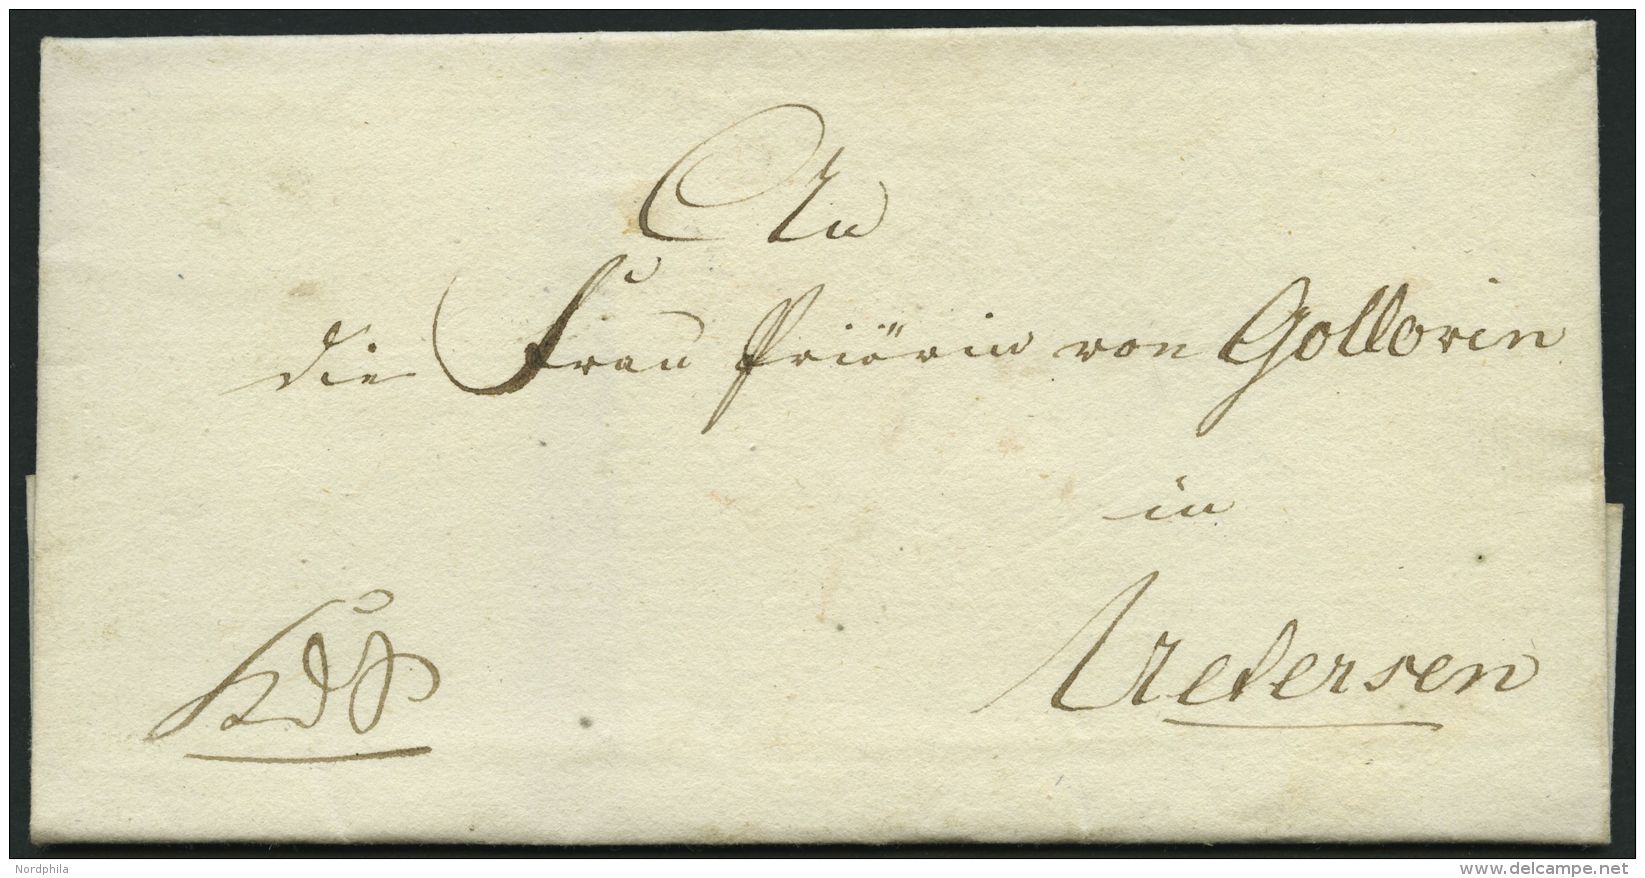 An
die Frau Priörin von Gollovin
in
Uetersen
KdS
Nordphila
delcampe.net